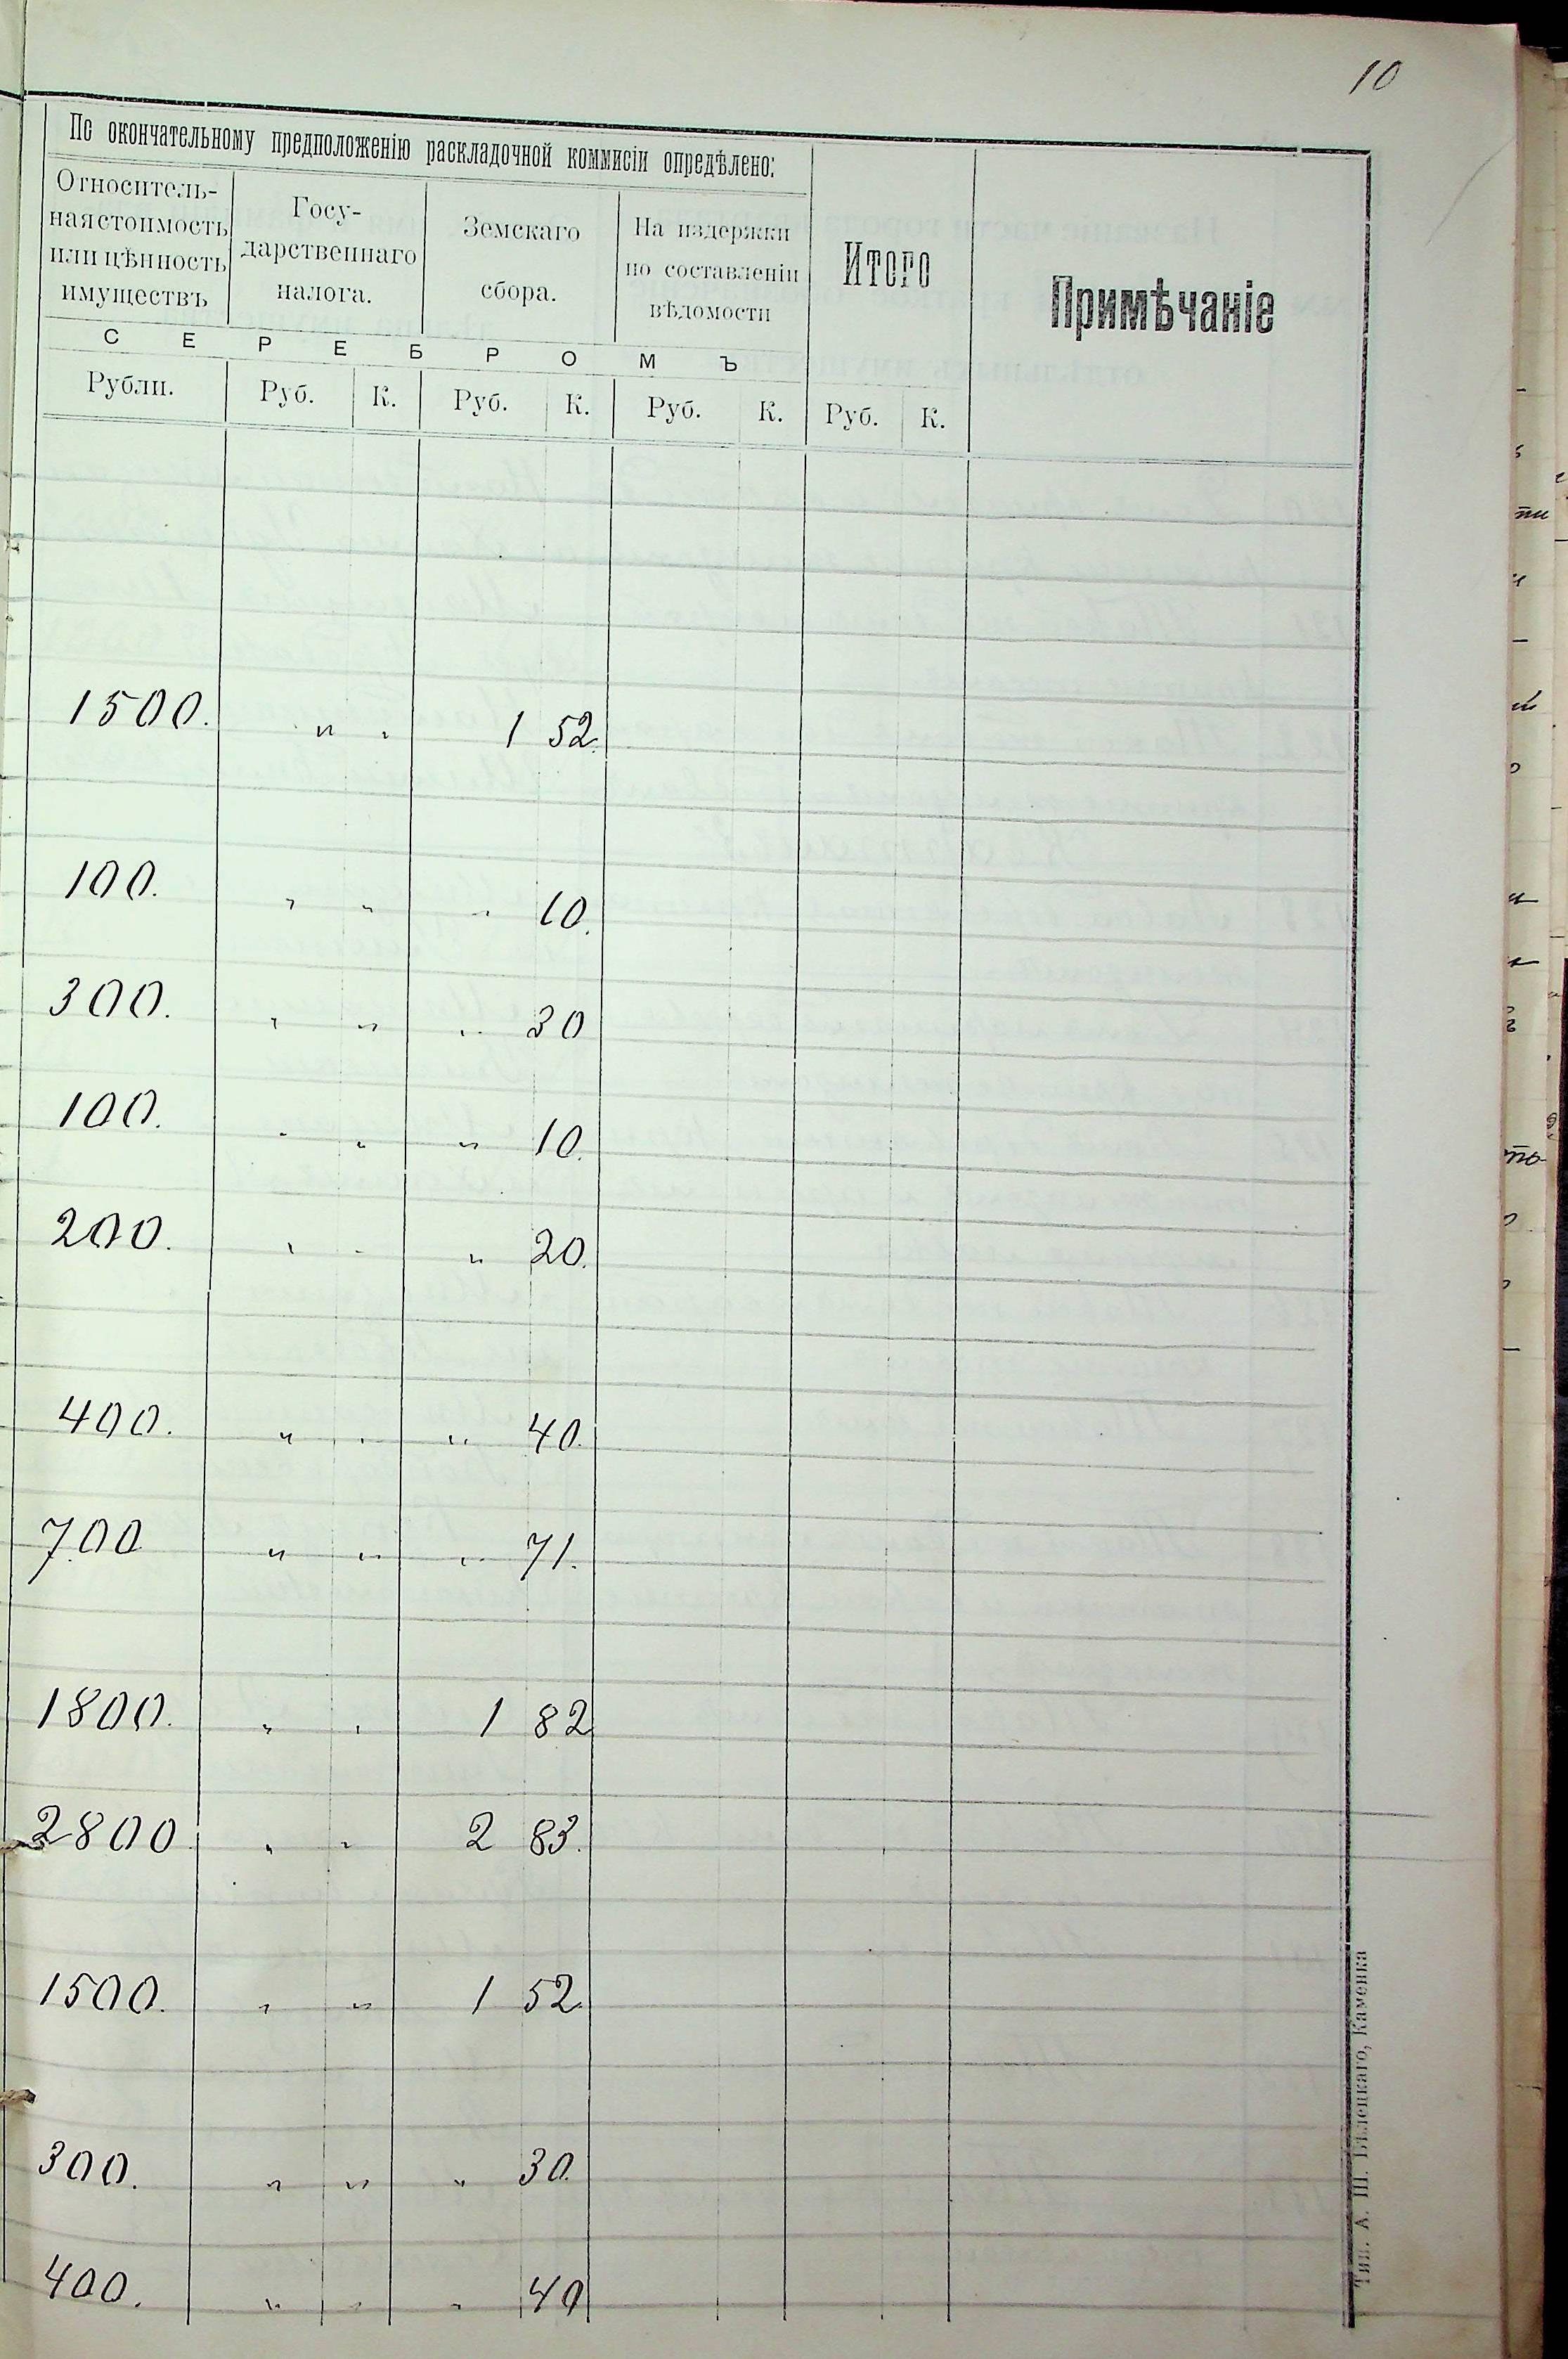 10
По окончательному предположенію раскладочной коммисіи опредѣлено:
Относитель-
ная стоимость
или цѣнность
имуществъ
Госу-
дарственнаго
налога.
Земскаго
сбора.
На издержки
по составленіи
вѣдомости
ИТОГО
Примѣчаніе
С Е Р Е Б Р О М Ъ
Рубли. Руб. К. Руб. К. Руб. К. Руб. К.
1500. " " 1 52.
100. " " " 10.
300. " " " 30
100. " " " 10.
200. " " " 20.
400. " " " 40.
700 " " " 71.
1800. " " 1 82
2800. " " 2 83.
1500. " " 1 52.
300. " " " 30.
400. " " " 40
Тип. А. Ш. Бѣлецкаго, Каменка